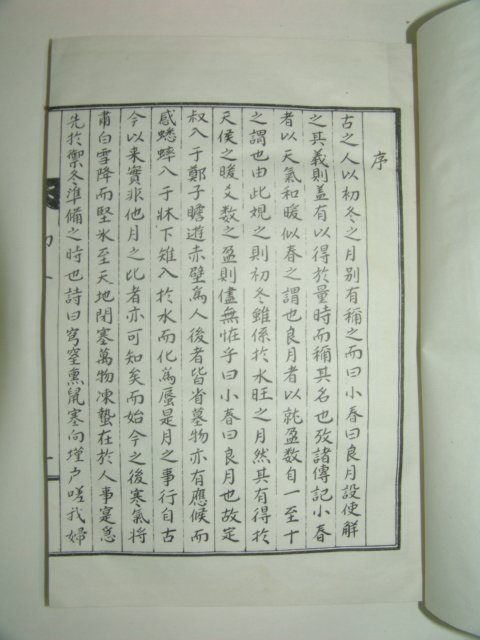 序
古之人以初冬之月別有稱之而曰小春曰良月設使解
之其義則盖有以得於量時而稱其名也攷諸傳記小春
者以天氣和暖似春之謂也良月者以就盈數自一至十
之謂也由此規之則初冬雖係於水旺之月然其有得於
天侯之暖爻數之盈則儘無恠乎曰小春曰良月也故定
叔入于鄭子瞻遊赤壁爲人後者皆省墓物亦有應候而
感蟋蟀入于牀下雉入於水而化爲蜃是月之事行自古
今以来實非他月之比者亦可知矣而始今之後寒氣將
甫白雪降而堅氷至天地閉塞萬物凍蟄在於人事寔急
先於禦冬準備之時也詩曰穹窒熏鼠塞向墐户嗟我婦